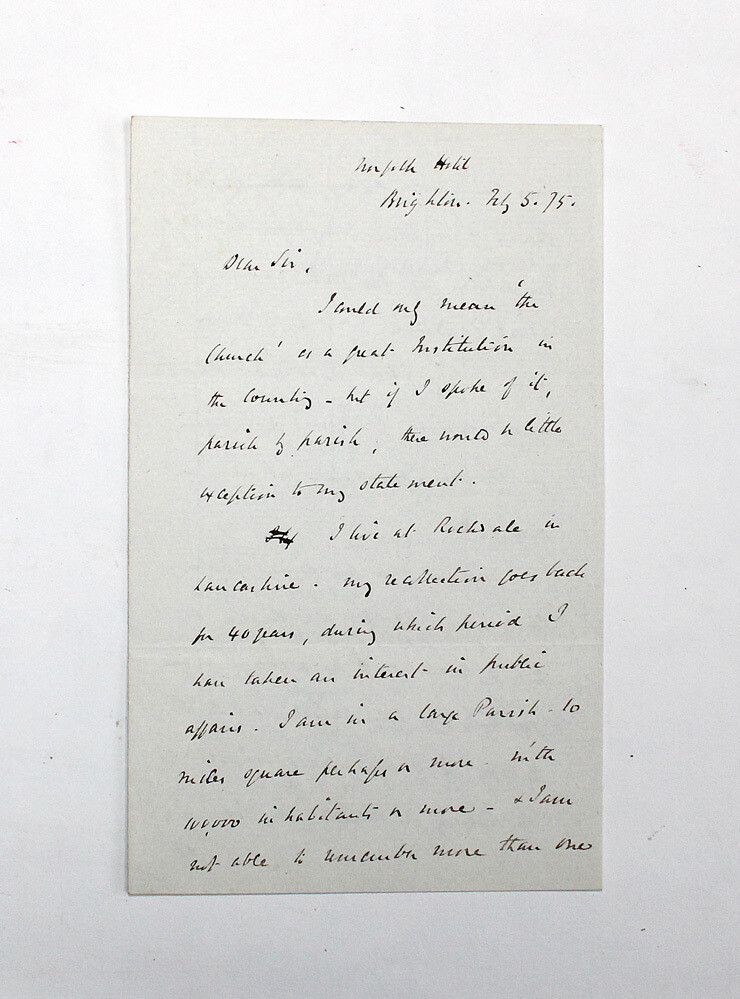 Norfolk Hotel
Brighton. Feby 5. 75.
Dear Sir,
I could only mean 'the
Church' as a great Institution in
the Country - but if I spoke of it,
parish by parish, there would be little
exception to my statement.
I live at Rochdale in
Lancashire. my recollection goes back
for 40 years, during which period I
have taken an interest in public
affairs. I am in a large Parish - 10
miles square perhaps or more - with
100,000 inhabitants or more - & I am
not able to remember more than one